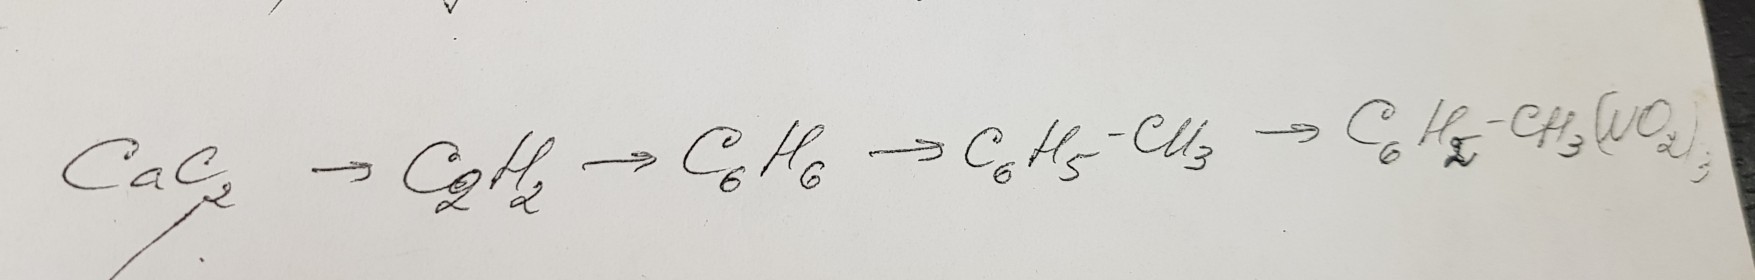 CaC₂ → C₂H₂ → C₆H₆ → C₆H₅-CH₃ → C₆H₂-CH₃(NO₂)₃